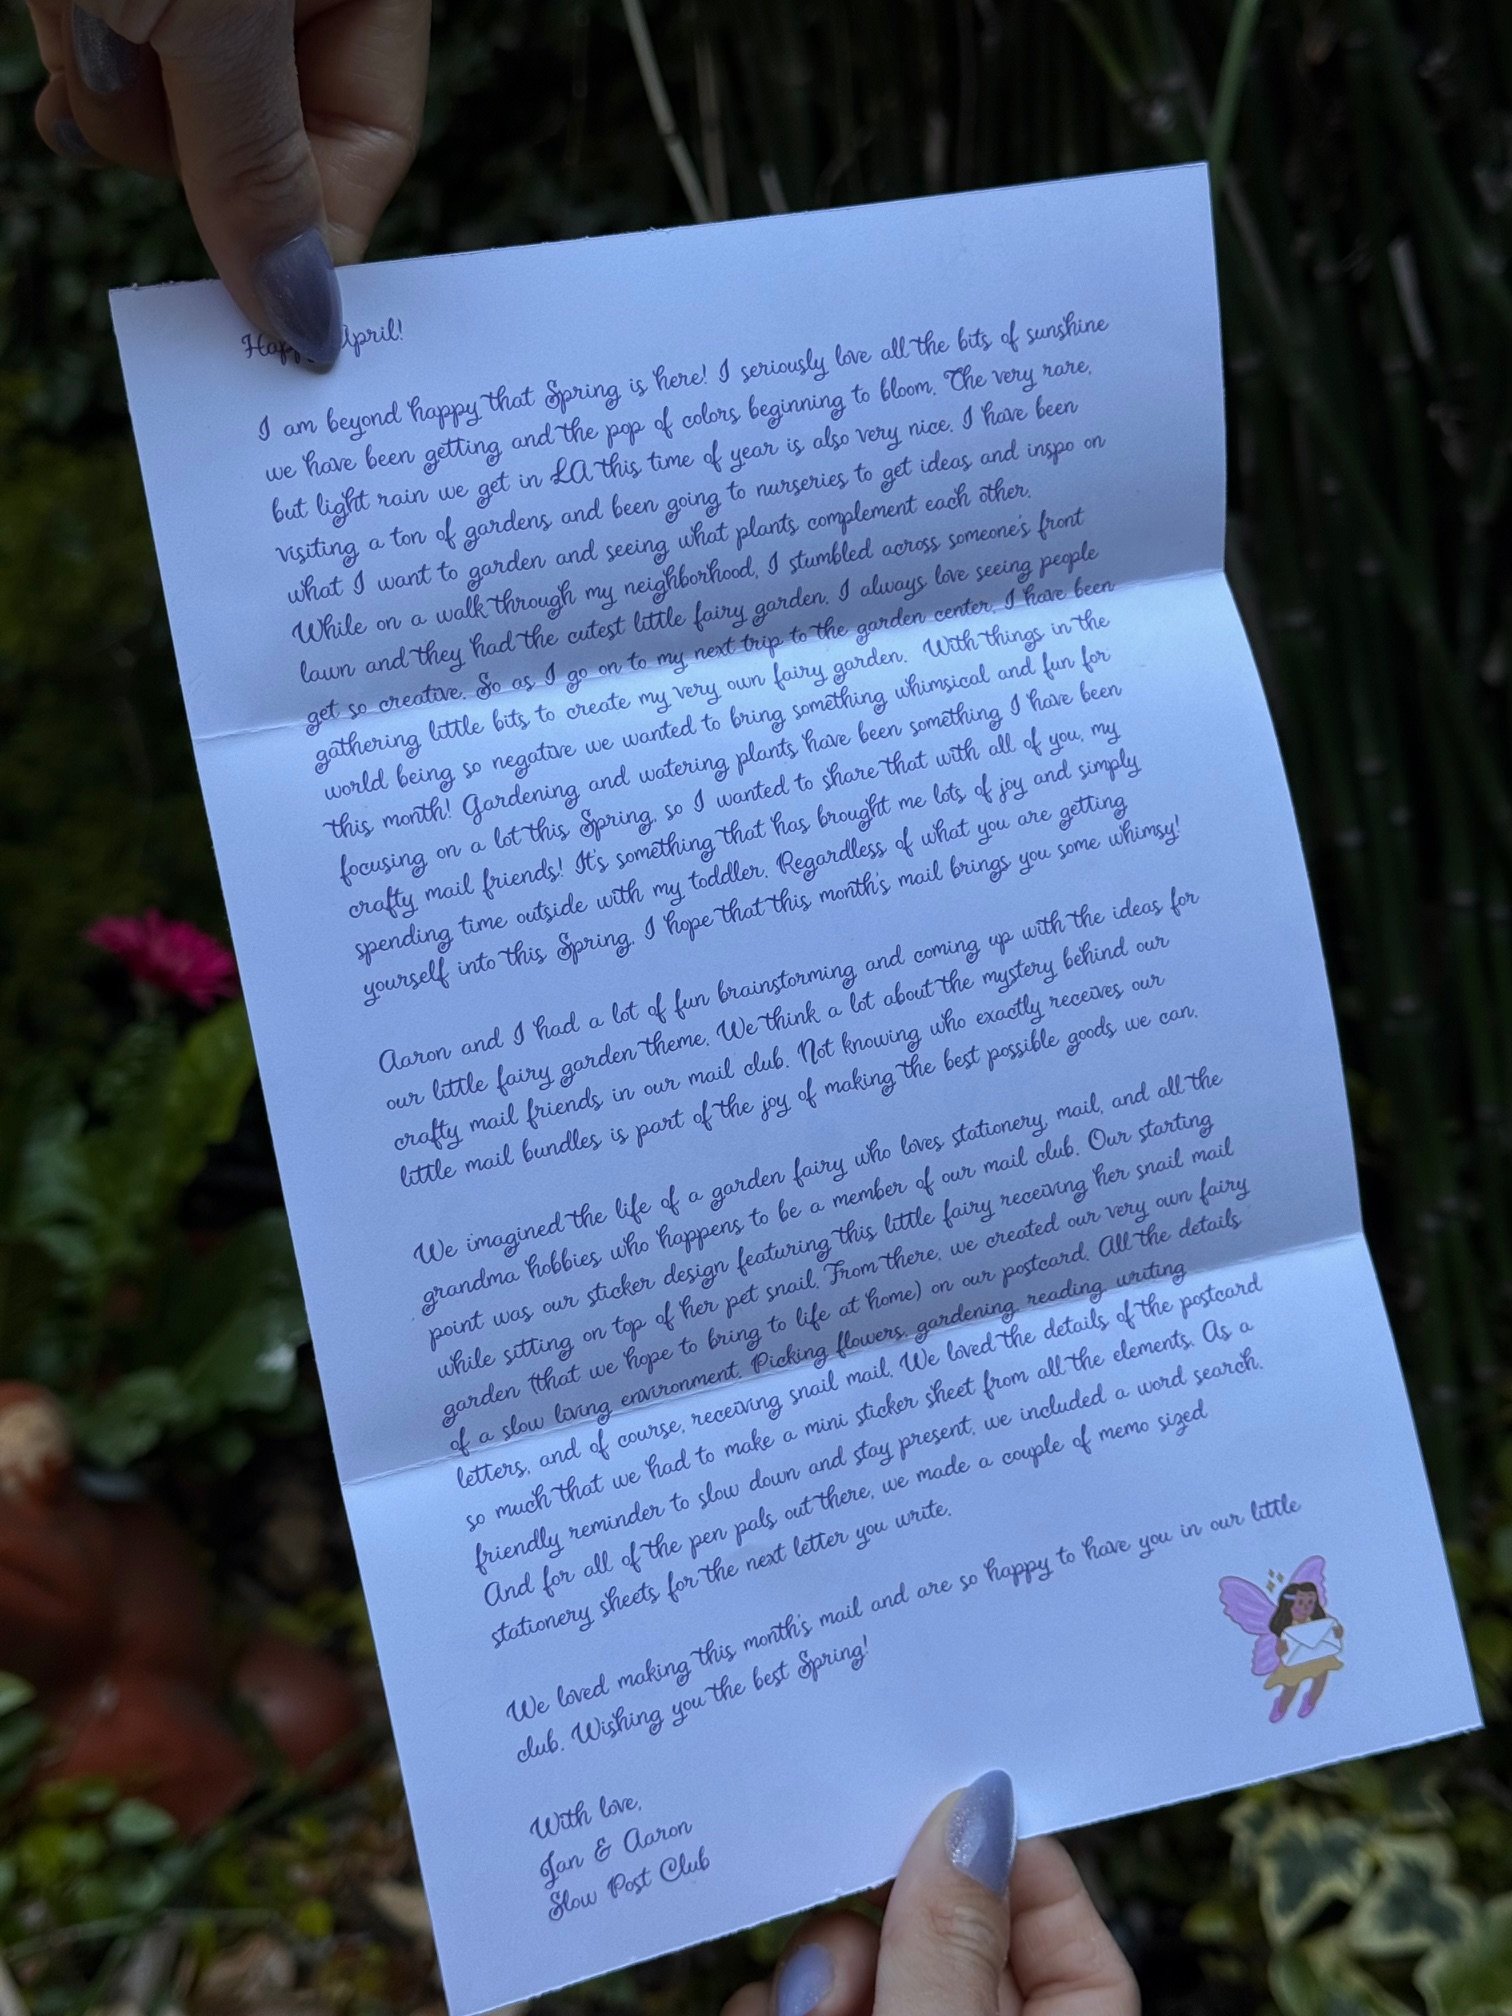 Happy April!
I am beyond happy that Spring is here! I seriously love all the bits of sunshine
we have been getting and the pop of colors beginning to bloom. The very rare,
but light rain we get in LA this time of year is also very nice. I have been
visiting a ton of gardens and been going to nurseries to get ideas and inspo on
what I want to garden and seeing what plants complement each other.
While on a walk through my neighborhood, I stumbled across someone's front
lawn and they had the cutest little fairy garden. I always love seeing people
get so creative. So as I go on to my next trip to the garden center, I have been
gathering little bits to create my very own fairy garden. With things in the
world being so negative we wanted to bring something whimsical and fun for
this month! Gardening and watering plants have been something I have been
focusing on a lot this Spring, so I wanted to share that with all of you, my
crafty mail friends! It's something that has brought me lots of joy and simply
spending time outside with my toddler. Regardless of what you are getting
yourself into this Spring, I hope that this month's mail brings you some whimsy!
Aaron and I had a lot of fun brainstorming and coming up with the ideas for
our little fairy garden theme. We think a lot about the mystery behind our
crafty mail friends in our mail club. Not knowing who exactly receives our
little mail bundles is part of the joy of making the best possible goods we can.
We imagined the life of a garden fairy who loves stationery, mail, and all the
grandma hobbies who happens to be a member of our mail club. Our starting
point was our sticker design featuring this little fairy receiving her snail mail
while sitting on top of her pet snail. From there, we created our very own fairy
garden (that we hope to bring to life at home) on our postcard. All the details
of a slow living environment. Picking flowers, gardening, reading, writing
letters, and of course, receiving snail mail. We loved the details of the postcard
so much that we had to make a mini sticker sheet from all the elements. As a
friendly reminder to slow down and stay present, we included a word search.
And for all of the pen pals out there, we made a couple of memo sized
stationery sheets for the next letter you write.
We loved making this month's mail and are so happy to have you in our little
club. Wishing you the best Spring!
With love,
Jan & Aaron
Slow Post Club